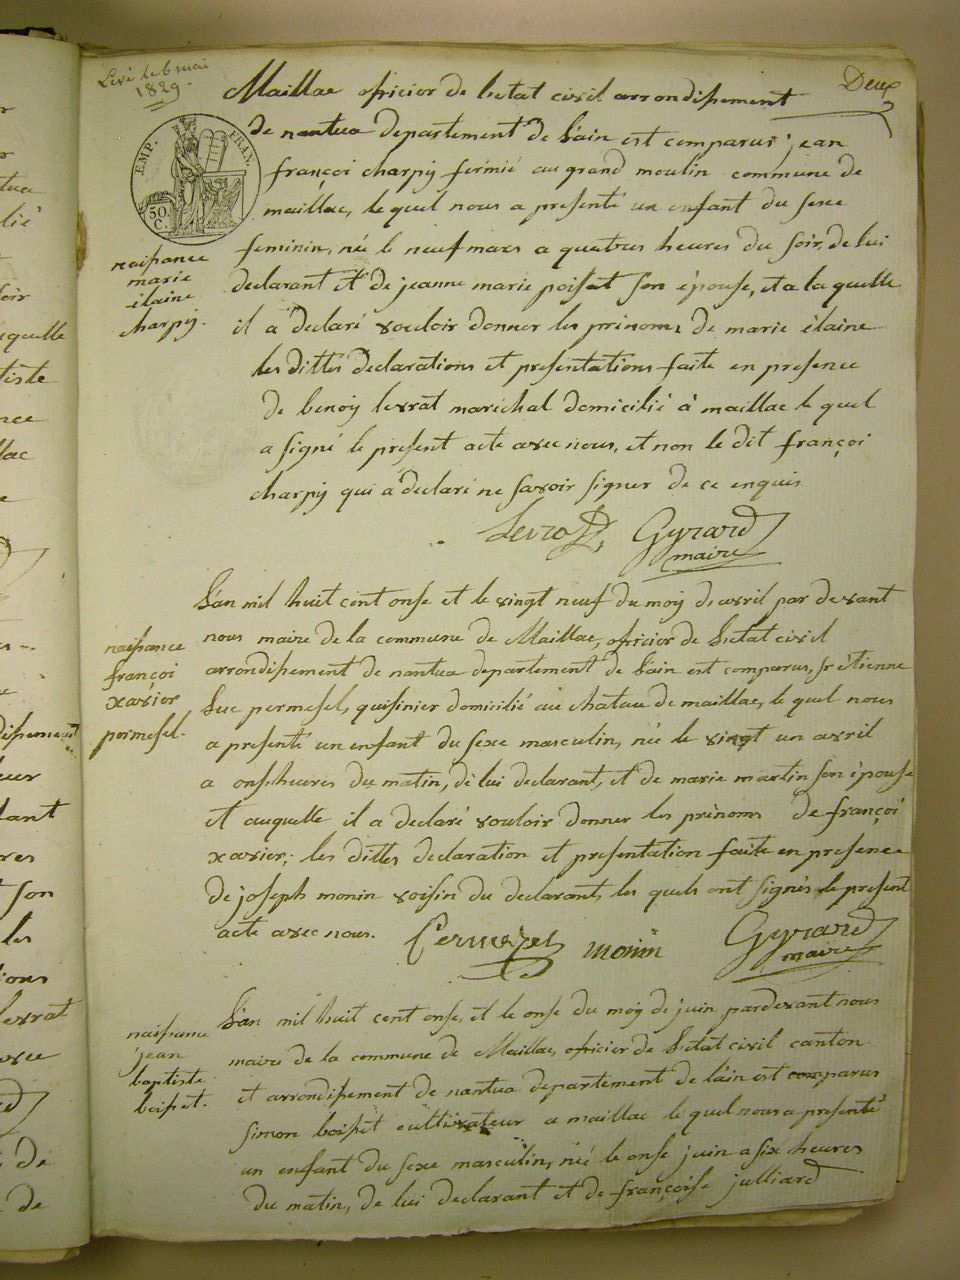 Levé le 6 mai
1829.
Deux
EMP. FRAN.
50 C.
Maillac oficier de letat civil arrondissement
de nantua departement de l'ain est comparus jean
françoi charpy fermié au grand moulin commune de
maillac, le quel nous a presenté un enfant du sexe
feminin, née le neuf mars a quatres heures du soir, de lui
declarant et de jeanne marie poisat son épouse, et a la quelle
il a declaré vouloir donner les prénoms de marie élaine
les dittes declarations et presentations faite en presence
de benoy levrat maréchal domicilié à maillac le quel
a signé le present acte avec nous, et non le dit françoi
charpy qui a declaré ne savoir signer de ce enquis
Levrat, Gyrard
maire
naissance
marie
élaine
charpy.
L'an mil huit cent onse et le vingt neuf du moy d'avril par devant
nous maire de la commune de Maillac, oficier de letat civil
arrondissement de nantua departement de l'ain est comparus, sr étienne
Luc permesel, quisinier domicilié au chatau de maillac, le quel nous
a presenté un enfant du sexe masculin, née le vingt un avril
a onse heures du matin, de lui declarant, et de marie martin son épouse
et auquelle il a declaré vouloir donner les prénoms de françoi
xavier; les dittes déclaration et presentation faite en presence
de joseph monin voisin du declarant, les quels ont signés le present
acte avec nous. Permezel monin Gyrard
maire
naissance
françoi
xavier
permesel.
L'an mil huit cent onse, et le onse du moy de juin pardevant nous
maire de la commune de Maillac, oficier de letat civil canton
et arrondissement de nantua departement de l'ain est comparus
simon boisset cultivateur a maillac le quel nous a presenté
un enfant du sexe masculin, née le onse juin a six heures
du matin, de lui declarant et de françoise julliard
naissance
jean
baptiste
boisset.